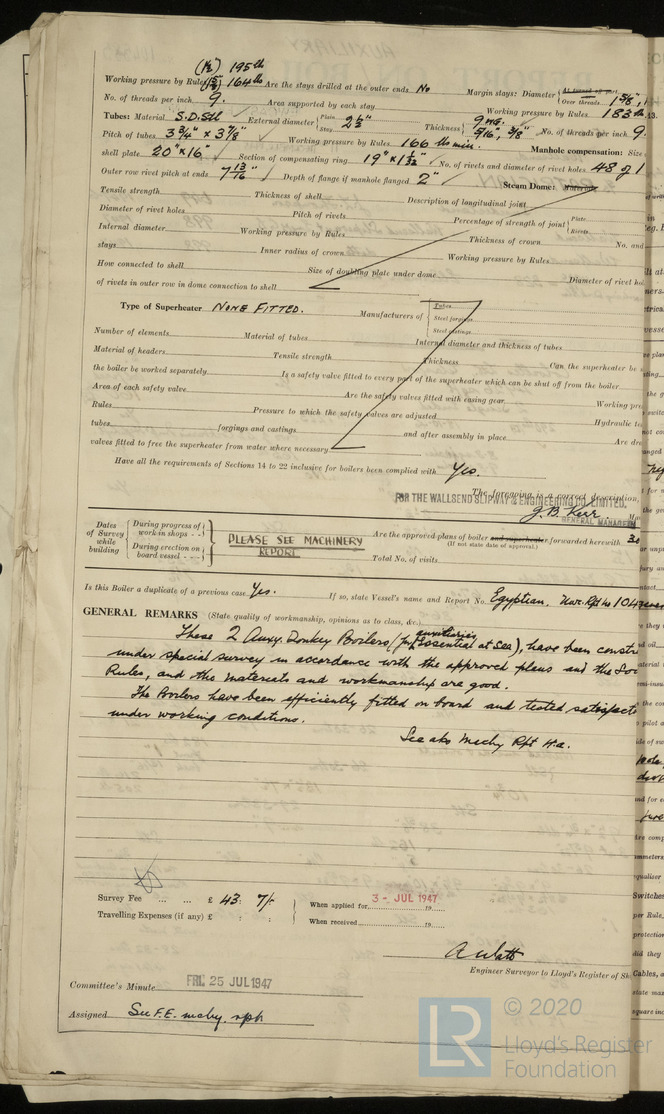 (1½) 195 lb
Working pressure by Rules 164 lb Are the stays drilled at the outer ends No Margin stays: Diameter { At turned off part, Over threads 1⅝",
No. of threads per inch 9. Area supported by each stay Working pressure by Rules 183 lb
Tubes: Material S.D. Stl External diameter { Plain Stay 2½" Thickness { 9 WG. 5/16", 3/8" No. of threads per inch 9.
Pitch of tubes 3¾" x 3⅞" Working pressure by Rules 166 lb min. Manhole compensation: Size
shell plate 20" x 16" Section of compensating ring 19" x 1 No. of rivets and diameter of rivet holes 48 of 1
Outer row rivet pitch at ends 7 13/16" Depth of flange if manhole flanged 2" Steam Dome: Material
Tensile strength Thickness of shell Description of longitudinal joint
Diameter of rivet holes Pitch of rivets Percentage of strength of joint { Plate Rivets
Internal diameter Working pressure by Rules Thickness of crown No. and
stays Inner radius of crown Working pressure by Rules
How connected to shell Size of doubling plate under dome Diameter of rivet hol
of rivets in outer row in dome connection to shell
Type of Superheater NONE FITTED. Manufacturers of { Tubes Steel forgings Steel castings
Number of elements Material of tubes Internal diameter and thickness of tubes
Material of headers Tensile strength Thickness Can the superheater be
the boiler be worked separately Is a safety valve fitted to every part of the superheater which can be shut off from the boiler
Area of each safety valve Are the safety valves fitted with easing gear Working pre
Rules Pressure to which the safety valves are adjusted Hydraulic te
tubes forgings and castings and after assembly in place Are dra
valves fitted to free the superheater from water where necessary
Have all the requirements of Sections 14 to 22 inclusive for boilers been complied with Yes.
The foregoing is a correct description,
FOR THE WALLSEND SLIPWAY & ENGINEERING CO. LIMITED,
J. B. Kerr
GENERAL MANAGER
Dates of Survey while building { During progress of work in shops - - During erection on board vessel - - - } PLEASE SEE MACHINERY REPORT Are the approved plans of boiler and superheater forwarded herewith
(If not state date of approval.)
Total No. of visits
Is this Boiler a duplicate of a previous case Yes. If so, state Vessel's name and Report No. Egyptian. Nwc. Rpt No 104
GENERAL REMARKS (State quality of workmanship, opinions as to class, &c.
These 2 Auxy. Donkey Boilers (for auxiliaries essential at Sea), have been constr
under special survey in accordance with the approved plans and the Soc
Rules, and the materials and workmanship are good.
The Boilers have been efficiently fitted on board and tested satisfact
under working conditions.
See also Machy Rpt 4.a.
Survey Fee ... ... £ 43 : 7/- When applied for 3 - JUL 1947
Travelling Expenses (if any) £ : : When received 19
A Watt
Engineer Surveyor to Lloyd's Register of Sh
Committee's Minute FRI. 25 JUL 1947
Assigned See F.E. mchy. rpt
© 2020
LR Lloyd's Register
Foundation